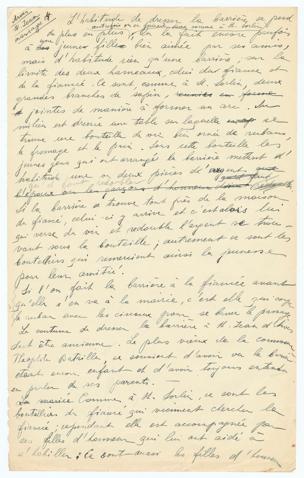 L'habitude de dresser la barrière se perd
de plus en plus, on la fait encore parfois
à une jeune fille bien aimée par ses amies,
mais d'habitude rien qu'une barrière, sur la
limite des deux hameaux, celui du fiancé et
de la fiancée. Ce sont, comme à St. Sorlin, deux
grandes branches de sapin,
jointes de manière à former un arc. Au
milieu est dressée une table sur laquelle se
trouve une bouteille de vin bien ornée de rubans,
du fromage et le pain. Sous cette bouteille les
jeunes gens qui ont arrangé la barrière mettent d'
habitude une ou deux pièces d'argent
Si la barrière se trouve tout près de la maison
du fiancé, celui-ci y arrive et c'est alors lui
qui verse du vin et redouble l'argent se trou-
vant sous la bouteille; autrement ce sont les
boutelliers qui remercient ainsi la jeunesse
pour leur amitié.
Si l'on fait la barrière à la fiancée avant
qu'elle s'en va à la mairie, c'est elle qui coupe
le ruban avec les ciseaux pour se livrer le passage.
La coutume de dresser la barrière à St. Jean d'Arves
doit être ancienne. Le plus vieux de la commune
Théophile se souvient d'avoir vu la barrière
étant encore enfant et d'avoir toujours entendu
en parler de ses parents.
La mariée. Comme à St. Sorlin, ce sont les
boutelliers du fiancé qui viennent chercher la
fiancée; cependant elle est accompagnée par
ses filles d'honneur qui lui ont aidé à
s'habiller: ce sont aussi les filles d'honneur